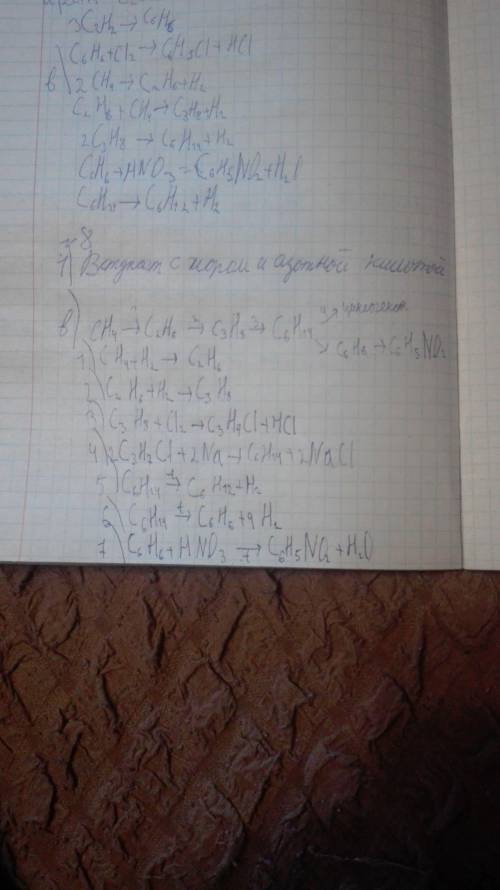 3C2H2→C6H6
C6H6+Cl2→C6H5Cl+HCl
в) 2CH4→C2H6+H2
C2H6+CH4→C3H8+H2
2C3H8→C6H14+H2
C6H6+HNO3=C6H5NO2+H2O
C6H14→C6H12+H2
8
1) Вступает с хлором и азотной кислотой
в) CH4→C2H6→C3H8→C6H14
C6H6→C6H5NO2
1) CH4+H2→C2H6
2) C2H6+H2→C3H8
3) C3H8+Cl2→C3H7Cl+HCl
4) 2C3H7Cl+2Na→C6H14+2NaCl
5) C6H14→C6H12+H2
6) C6H14→C6H6+4H2
7) C6H6+HNO3→C6H5NO2+H2O